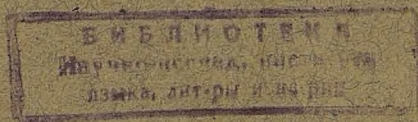 БИБЛИОТЕКА
Научно-исслед. инст-та
языка, лит-ры и